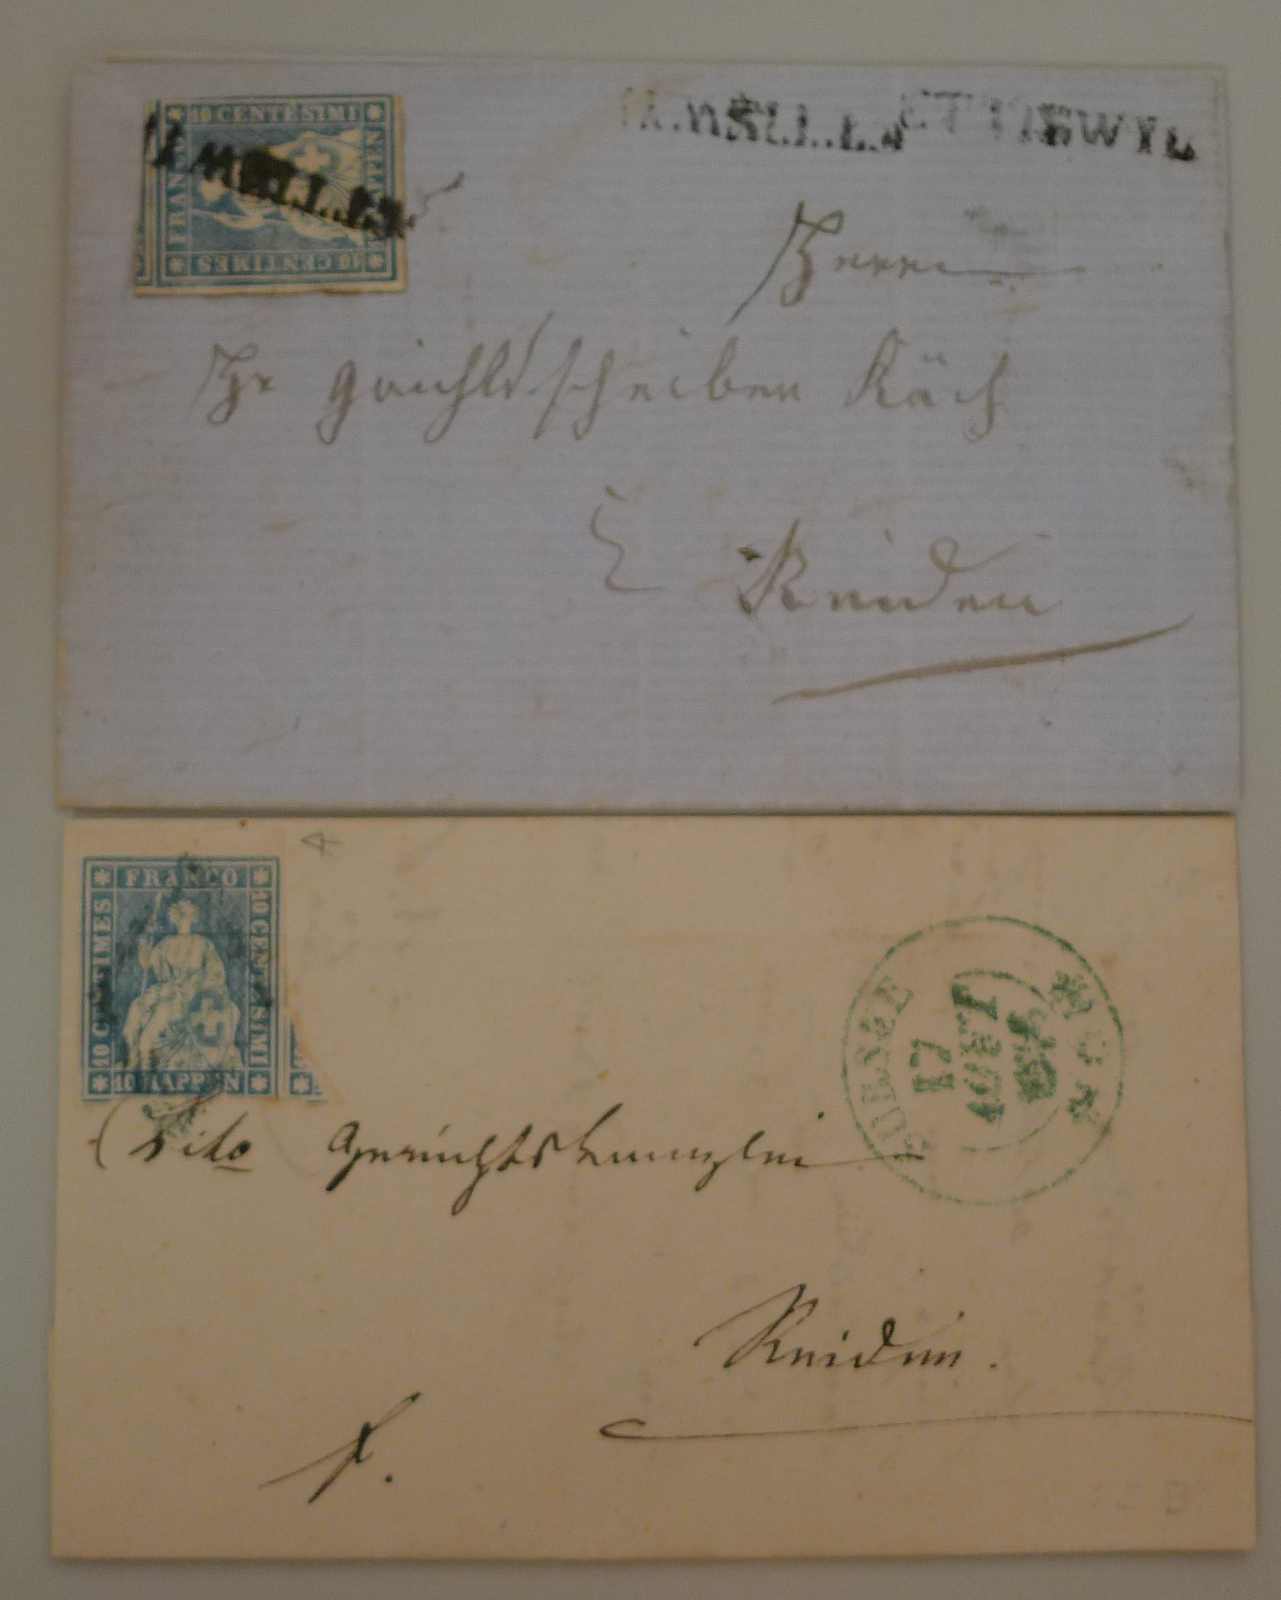 10 CENTESIMI
FRANCO
RAPPEN
10 CENTIMES
ETTISWYL
Herrn
Hr Grichtsschreiber Käch
Reiden
FRANCO
10 CENTIMES
10 CENTESIMI
10 RAPPEN
SURSEE
17
AOUT
Gerichtskanzlei
Reiden.
f.